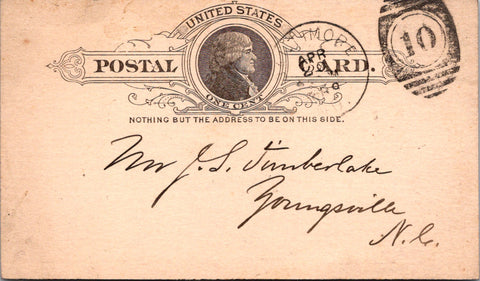 UNITED STATES
POSTAL CARD.
ONE CENT
NOTHING BUT THE ADDRESS TO BE ON THIS SIDE.
APR
10
Mr J. S. Timberlake
Youngsville
N.C.